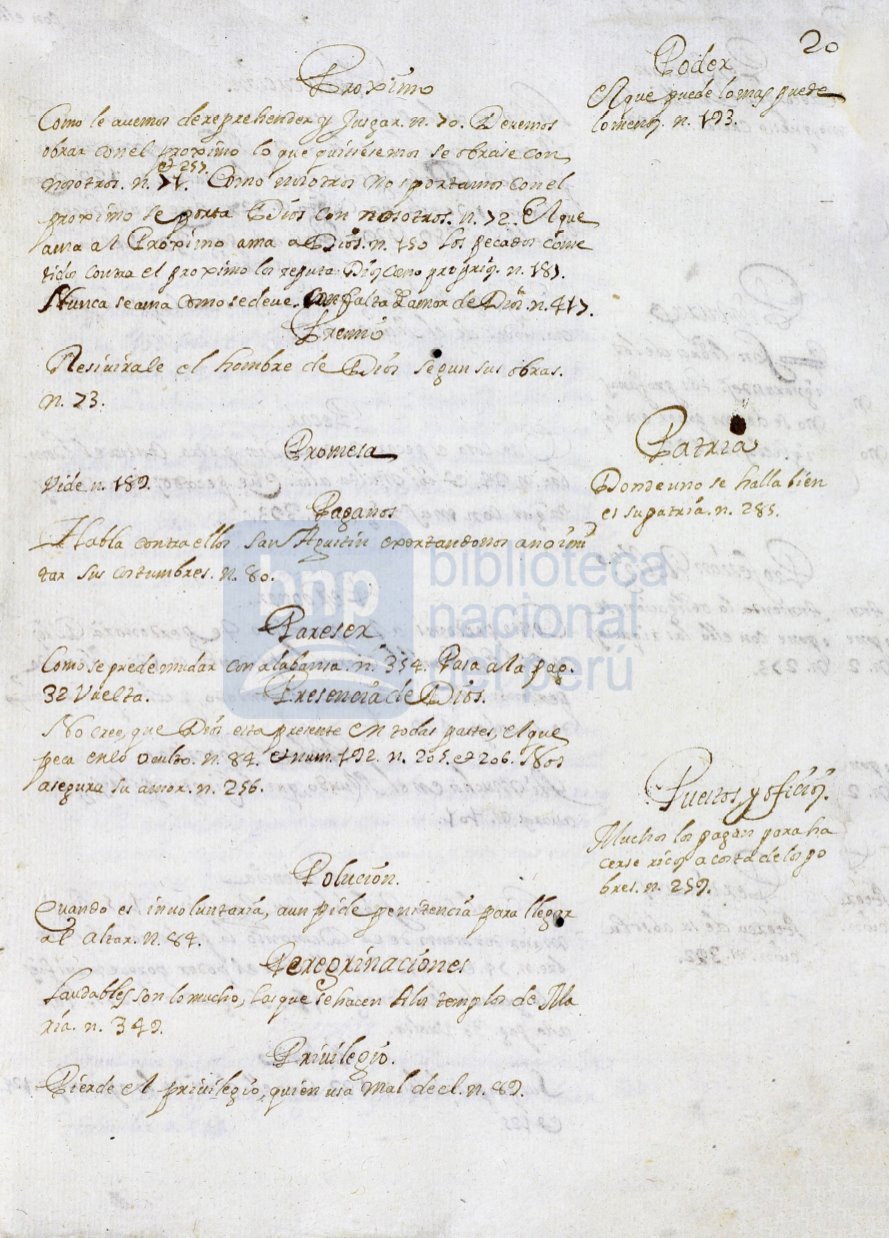 20
Proximo
Como le auemos de reprehender y Jusgar. n. 70. Deuemos
obrar con el proximo lo que quisiesemos se obrase con
et 257.
nosotros. n. 71. Como nosotros nos portamos con el
proximo se porta Dios con nosotros. n. 72. El que
ama al Proximo ama a Dios. n. 150 los pecados come
tidos contra el proximo los reputa Dios como proprios. n. 181.
Nunca se ama como se deue. Con falta d amor de Dios. n. 417.
Premio
Resiuirale el hombre de Dios segun sus obras.
n. 73.
Promesa
Vide n. 189.
Paganos
Habla contra ellos San Agustin exortandonos a no imi
tar sus costumbres. n. 80.
Pareser
Como se puede mudar con alabansa. n. 354. Pasa a la pag.
32 Vuelta.
Presencia de Dios.
No cree, que Dios esta presente en todas partes, el que
peca en lo oculto. n. 84. et num. 192. n. 205. et 206. Nos
asegura su amor. n. 256.
Polucion.
Quando es inuoluntaria, aun pide penitencia para llegar
al altar. n. 84.
Peregrinaciones
Laudables son lo mucho, las que se hacen a los templos de Ma
ria. n. 349.
Priuilegio.
Pierde el priuilegio, quien usa mal de el. n. 89.
Poder
El que puede lo mas puede
lo menos. n. 193.
Patria
Donde uno se halla bien
es su patria. n. 285.
Puestos, y oficios.
Muchos los pagan para ha
cerse ricos a costa de los po
bres. n. 259.
bnp biblioteca
nacional
del perú